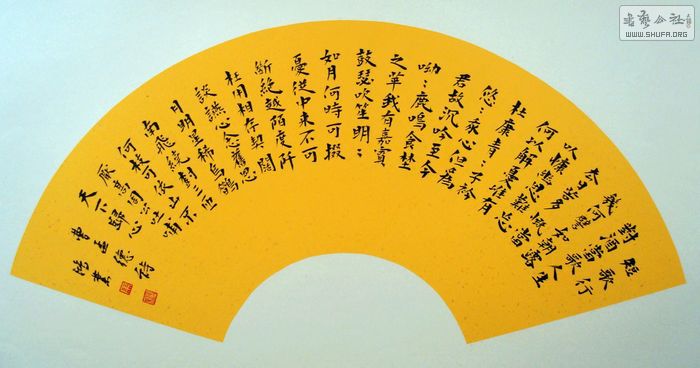 短歌行
對酒當歌人生
幾何譬如朝露
去日苦多慨當
以慷幽思難忘
何以解憂唯有
杜康青:子衿
悠:我心但為
君故沉吟至今
呦:鹿鳴食埜
之苹我有嘉賓
鼓瑟吹笙明:
如月何時可掇
憂從中來不可
斷絕越陌度阡
枉用相存契闊
談讌心念舊恩
月明星稀烏鵲
南飛繞樹三匝
何枝可依山不
厭高周公吐哺
天下歸心
曹孟德詩
WWW.SHUFA.ORG